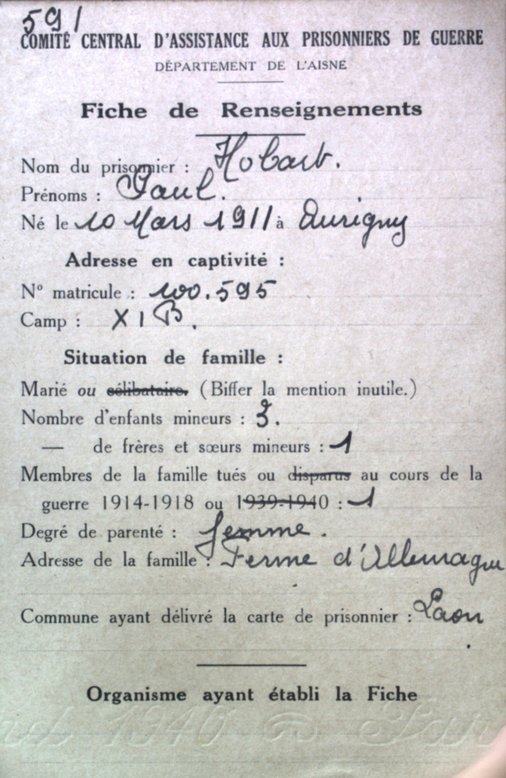 591
COMITÉ CENTRAL D'ASSISTANCE AUX PRISONNIERS DE GUERRE
DÉPARTEMENT DE L'AISNE
Fiche de Renseignements
Nom du prisonnier : Hobart.
Prénoms : Paul.
Né le 10 Mars 1911 à Aurigny
Adresse en captivité :
N° matricule : 100.595
Camp : XI B.
Situation de famille :
Marié ou célibataire. (Biffer la mention inutile.)
Nombre d'enfants mineurs : 3.
— de frères et sœurs mineurs : 1
Membres de la famille tués ou disparus au cours de la
guerre 1914-1918 ou 1939-1940 : 1
Degré de parenté : femme.
Adresse de la famille : Ferme d'Allemagne
Commune ayant délivré la carte de prisonnier : Laon
Organisme ayant établi la Fiche
1940